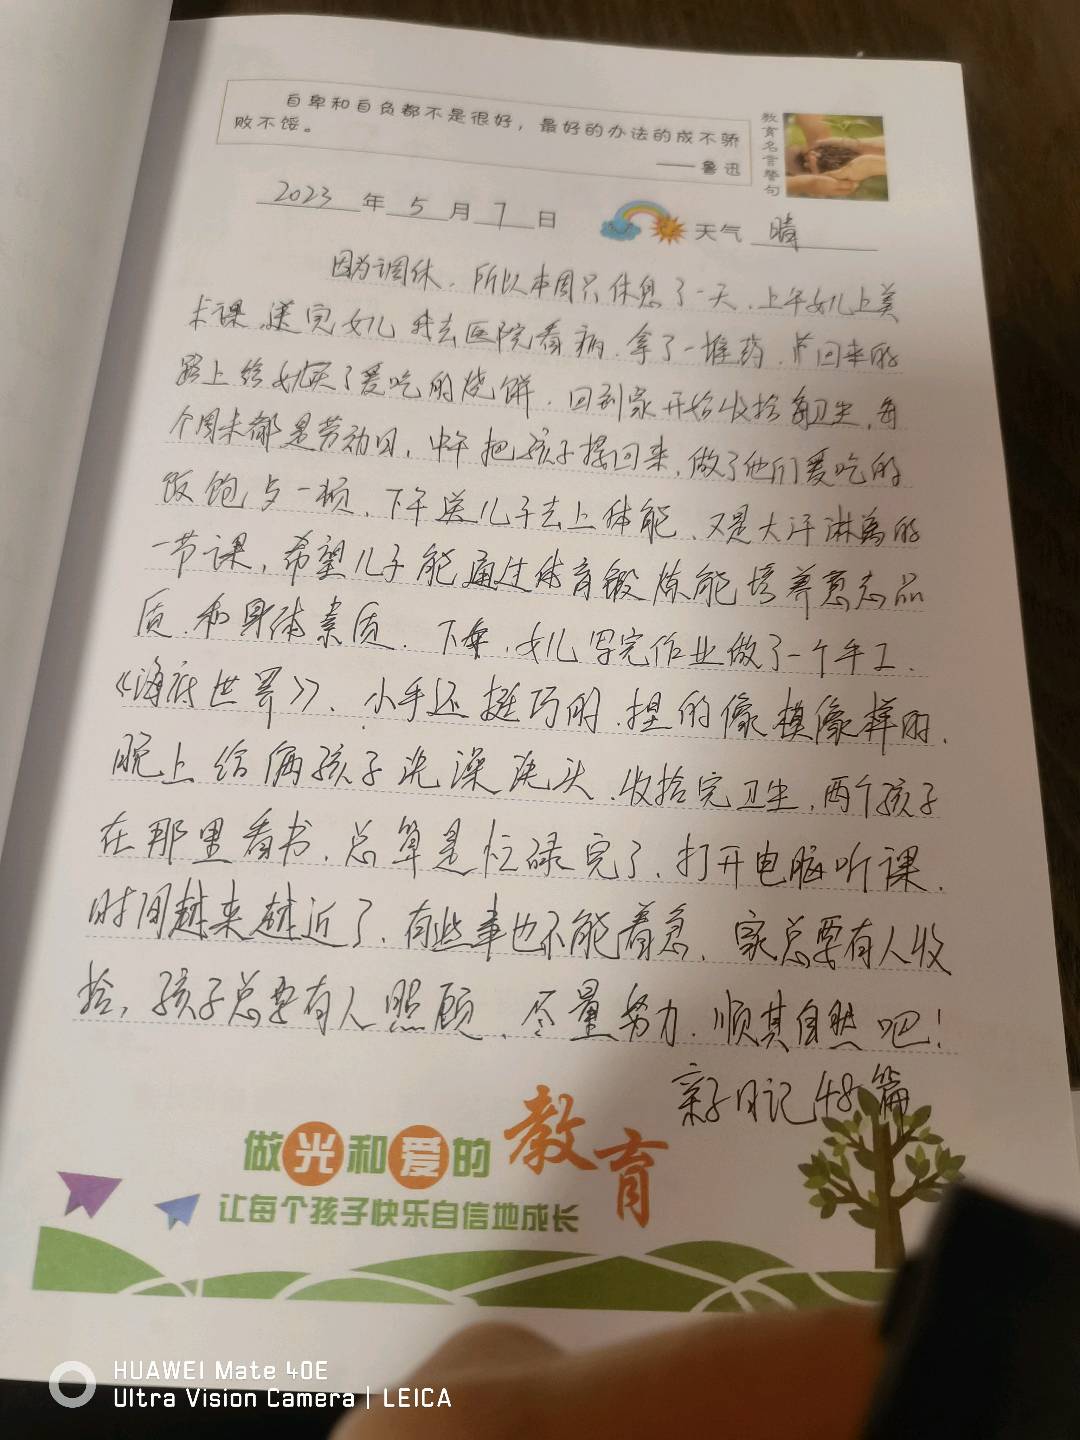 自卑和自负都不是很好，最好的办法的成不骄
败不馁。
——鲁迅
教育名言警句
2023年5月7日 天气 晴
因为调休，所以本周只休息了一天，上午女儿上美
术课，送完女儿我去医院看病，拿了一堆药，回来的
路上给她买了爱吃的烧饼，回到家开始收拾卫生，每
个周末都是劳动日，中午把孩子接回来，做了他们爱吃的
饭饱与一顿，下午送儿子去上体能，又是大汗淋漓的
一节课，希望儿子能通过体育锻炼能培养意志品
质，和身体素质，下午，女儿写完作业做了一个手工，
《海底世界》，小手还挺巧的，捏的像模像样的，
晚上给俩孩子洗澡洗头，收拾完卫生，两个孩子
在那里看书，总算是忙碌完了，打开电脑听课，
时间越来越近了，有些事也不能着急，家总要有人收
拾，孩子总要有人照顾，尽量努力，顺其自然吧！
亲子日记48篇
做光和爱的教育
让每个孩子快乐自信地成长
HUAWEI Mate 40E
Ultra Vision Camera | LEICA